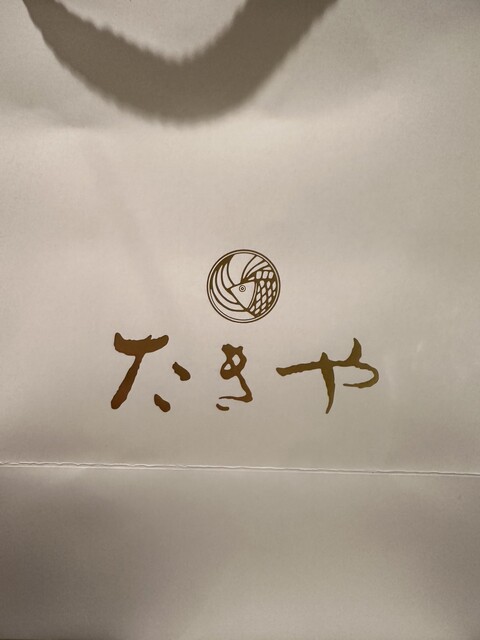 たきや